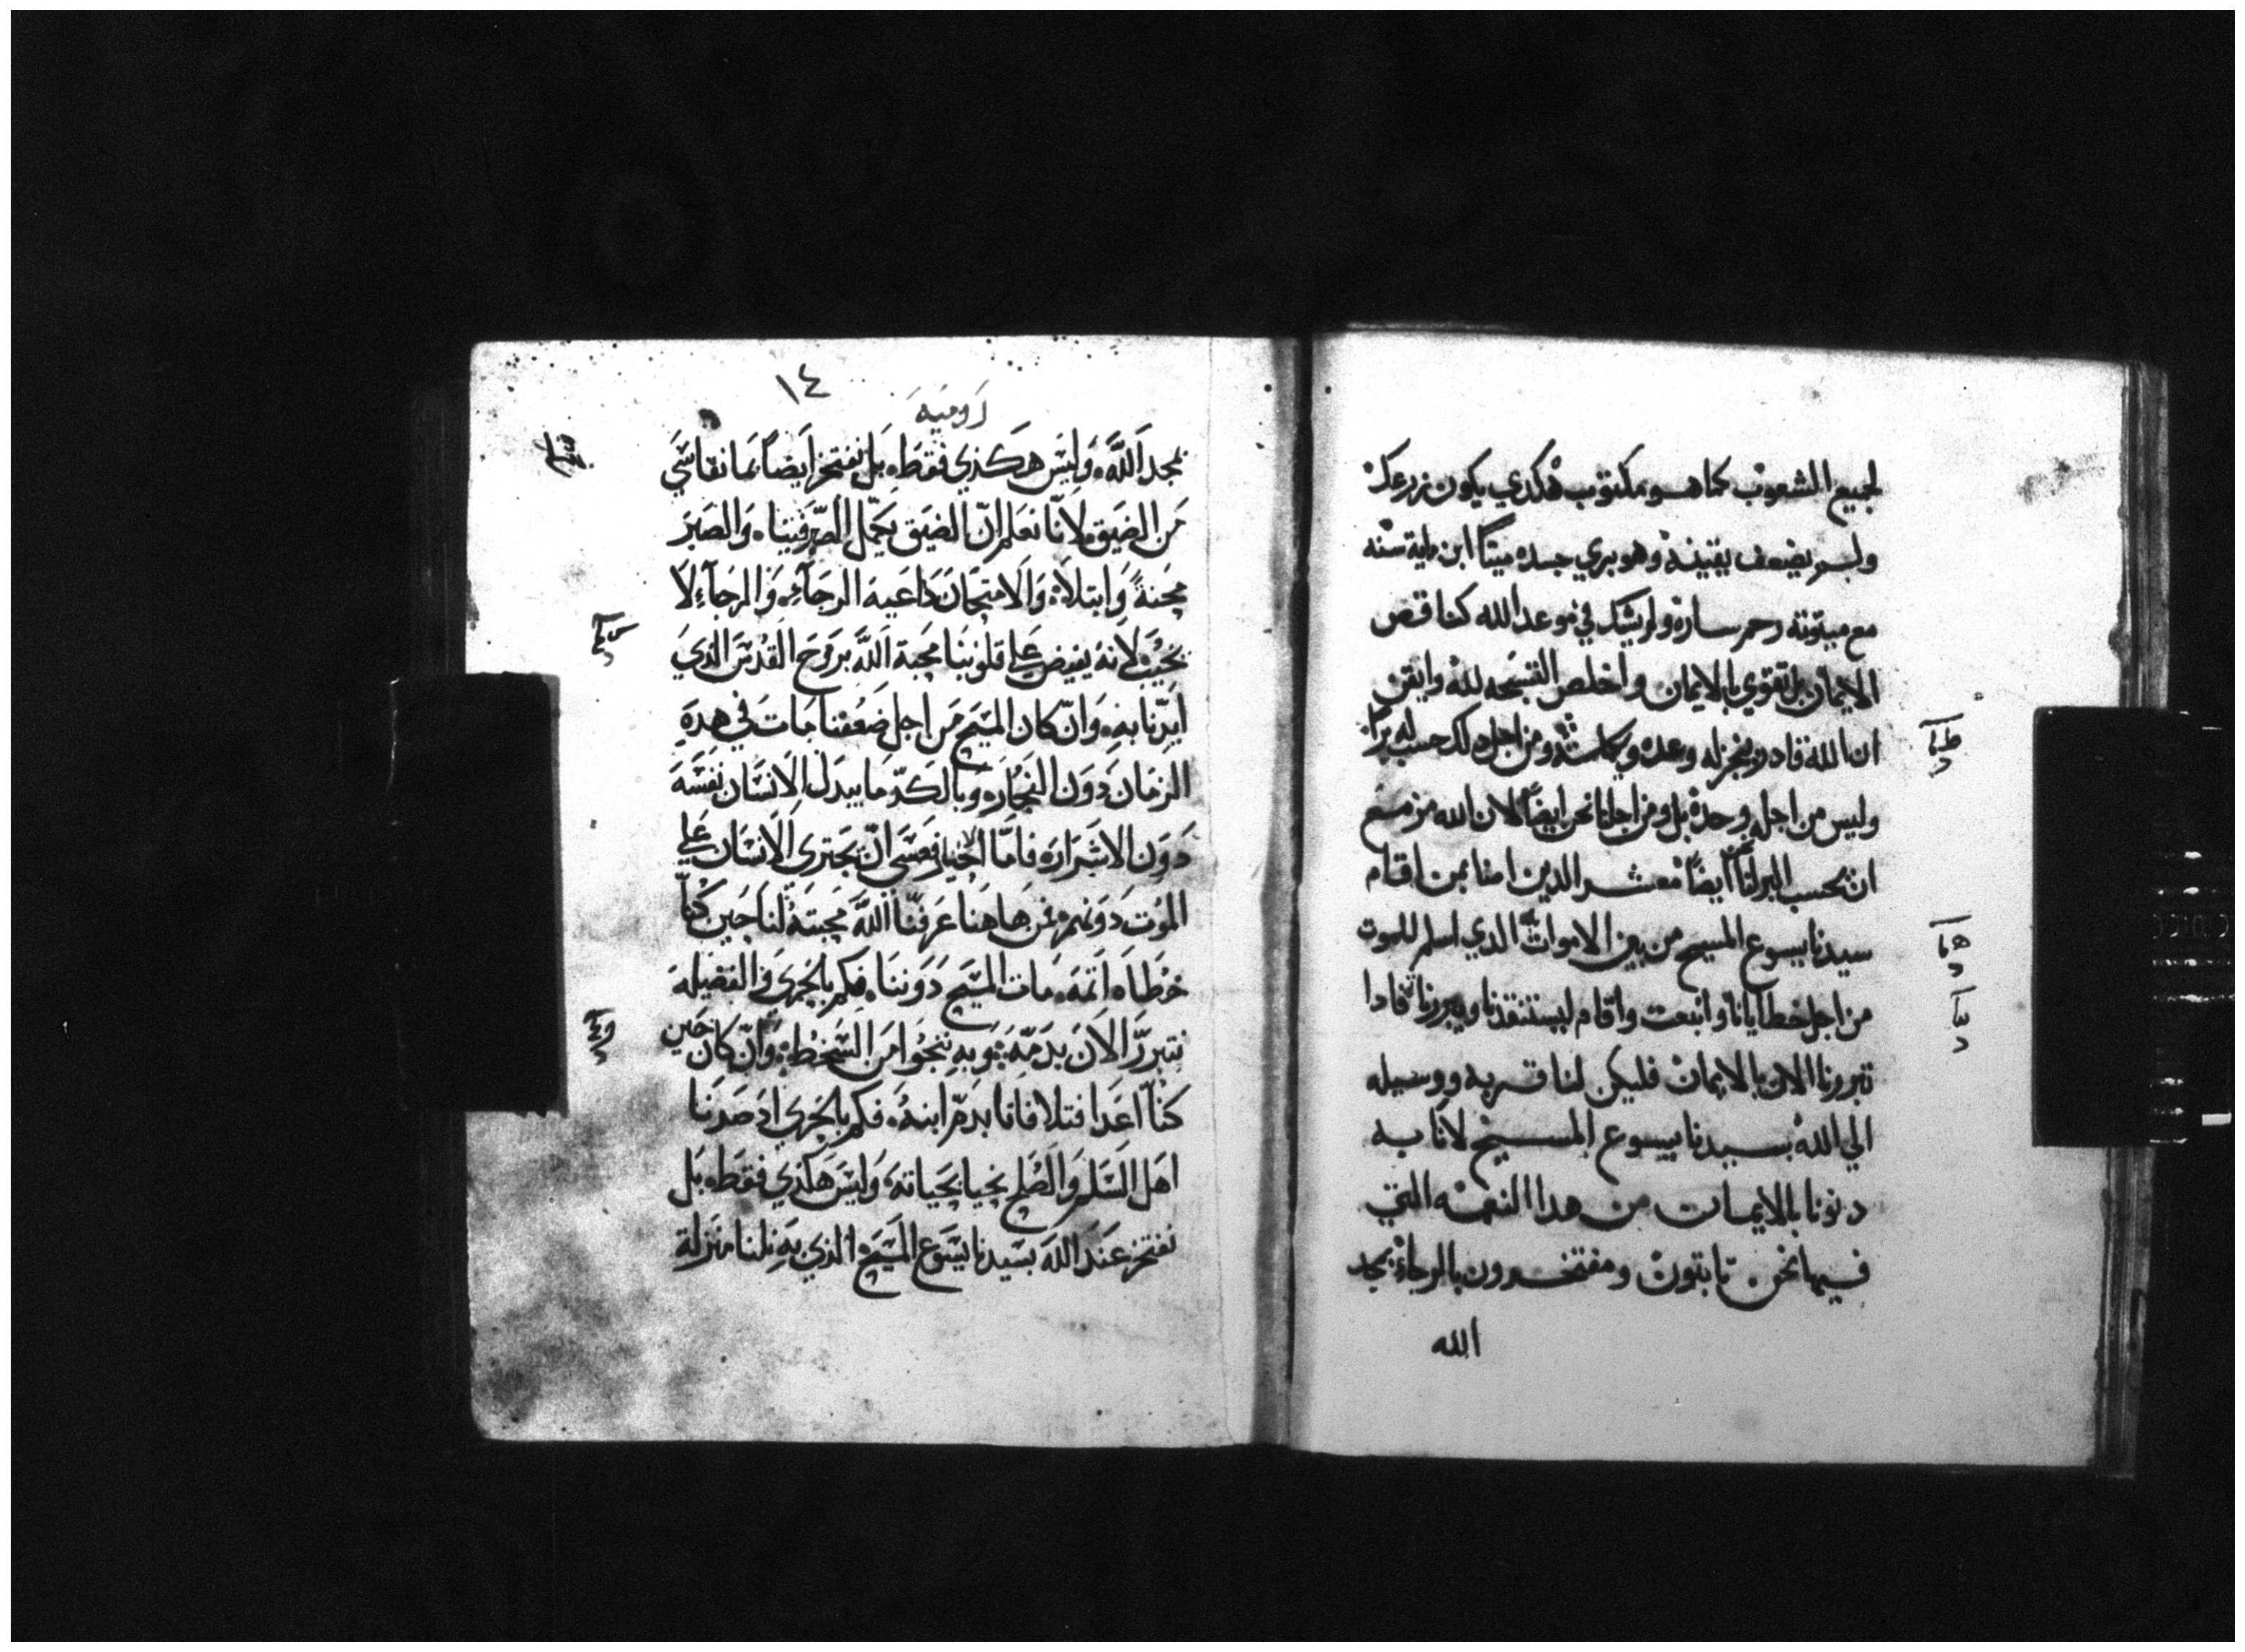 لجميع الشعوب كما هو مكتوب هكدي يكون زرعك
ولم يضعف يقينه وهو يري جسده ميتًا ابن ماية سنه
مع ميتوتة رحم ساره ولم يشك في موعد الله كناقص
الايمان بل تقوي بالايمان واخلص التسبحه لله وايقن
ان الله قادر ينجز له وعده ومن اجل دلك حسب له برًا
وليس من اجله وحده بل ومن اجلنا نحن ايضًا لان الله مزمع
ان يحسب البر لنا ايضًا معشر الدين امنا بمن اقام
سيدنا يسوع المسيح من بين الاموات الدي اسلم للموت
من اجل خطايانا وانبعت واقام ليستنقدنا ويبررنا فادا
تبررنا الان بالايمان فليكن لنا قربه ووسيله
الي الله بسيدنا يسوع المسيح لانا به
دنونا بالايمان من هدا النعمه التي
فيها نحن تابتون ومفتخرون بالرجاء بمجد
الله
١٤
روميه
بمجد الله وليس هكذي فقط بل نفتخر ايضًا بما نقاسي
من الضيق لانا نعلم ان الضيق يكمل الصبر فينا والصبر
محنة وابتلاه والامتحان داعية الرجاء والرجاء لا
يخيب لانه يفيض علي قلوبنا محبة الله بروح القدس الذي
ايدنا به وان كان المسيح من اجل ضعفنا مات في هده
الزمان دون الفجار وبالكد ما يبدل الانسان نفسه
دون الاشرار فاما الاخيار فعسي ان يجترى الانسان علي
الموت دونهم فمن هاهنا عرفنا الله محبته لنا حين كنا
خطاه اتمه مات المسيح دوننا فكم بالحري والفضيله
نتبرر الان بدمه وبه ننجوا من السخط وان كان حين
كنا اعدا فتلافانا بدم ابنه فكم بالحري اد صرنا
اهل السلم والصلح نحيا بحياته وليس هكذي فقط بل
نفتخر عند الله بسيدنا يسوع المسيح الذي به نلنا منزلة